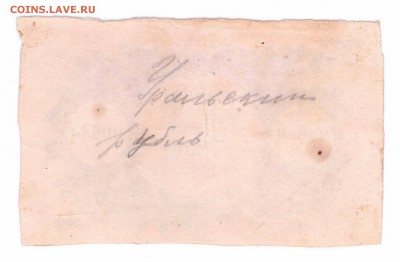 COINS.LAVE.RU
Уральский
рубль